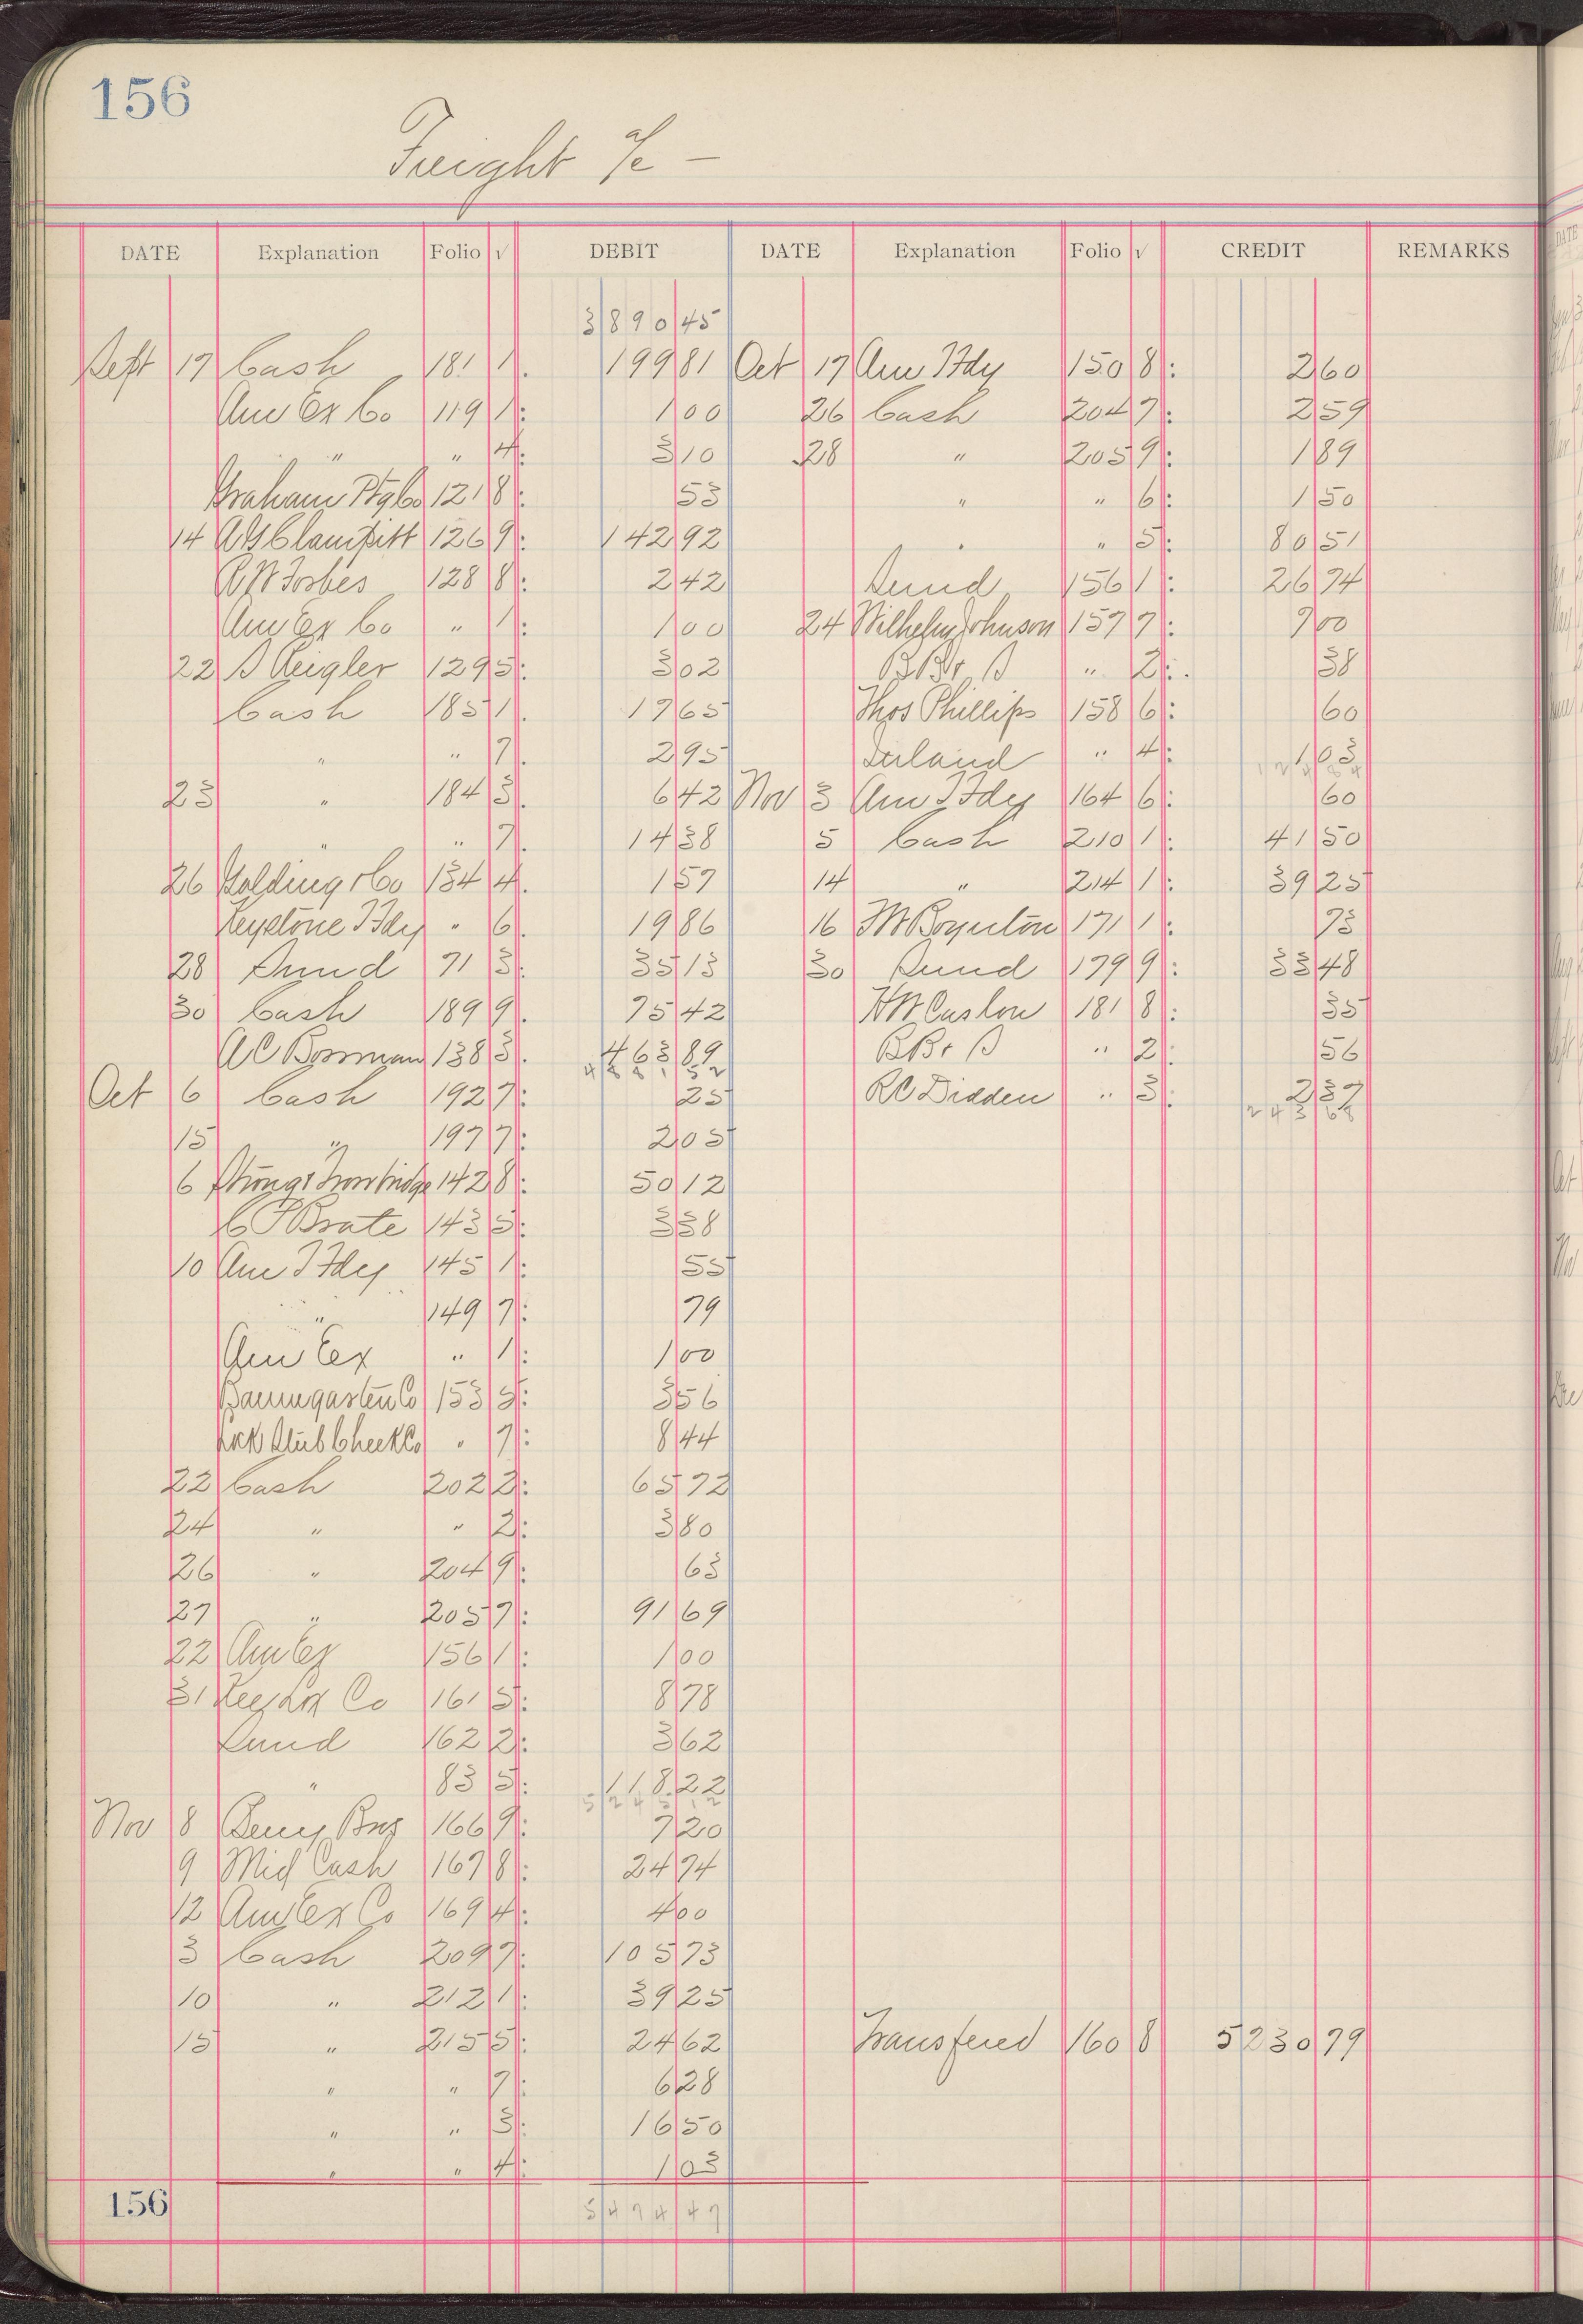 156
Freight a/c —
DATE Explanation Folio √ DEBIT DATE Explanation Folio √ CREDIT REMARKS
3890 45
Sept 17 Cash 181 1. 199 81 Oct 17 Am T Fdy 150 8: 2 60
Am Ex Co 119 1: 1 00 26 Cash 204 7: 2 59
" " 4: 3 10 28 " 205 9: 1 89
Graham Ptg Co 121 8: 53 " " 6: 1 50
14 A G Clampitt 126 9: 142 92 " " 5: 80 51
A W Forbes 128 8: 2 42 Sund 156 1: 26 74
Am Ex Co " 1: 1 00 24 Wilhelm Johnson 157 7: 7 00
22 S Reigler 129 5: 3 02 B B & S " 2: 38
Cash 185 1. 17 65 Thos Phillips 158 6: 60
" " 7. 2 95 " 4: 1 03
23 " 184 3. 6 42 Nov 3 Am T Fdy 164 6: 60
" " 7. 14 38 5 Cash 210 1: 41 50
26 Golding & Co 134 4. 1 57 14 " 214 1: 39 25
Keystone T Fdy " 6. 19 86 16 M Boynton 171 1: 73
28 Sund 71 3: 35 13 30 Sund 179 9: 33 48
30 Cash 189 9. 75 42 H W Caslon 181 8: 35
A C Bosman 138 3. 463 89 B B & S " 2: 56
Oct 6 Cash 192 7: 25 R C Didden " 3: 2 37
243 68
15 " 197 7: 2 05
6 Strong & Trowbridge 142 8: 50 12
C P Brate 143 5: 3 38
10 Am T Fdy 145 1: 55
" 149 7: 79
Am Ex " 1: 1 00
Baumgarten Co 153 5: 3 56
Stub Check Co " 7: 8 44
22 Cash 202 2: 65 72
24 " " 2: 3 80
26 " 204 9: 63
27 " 205 7: 91 69
22 Am Ex 156 1: 1 00
31 Kee Lox Co 161 5: 8 78
Sund 162 2: 3 62
" 83 5: 118 22
5245 12
Nov 8 Perry Bros 166 9: 7 20
9 Mid Cash 167 8: 24 74
12 Am Ex Co 169 4: 4 00
3 Cash 209 7: 105 73
10 " 212 1: 39 25
15 " 215 5: 24 62 Transfered 160 8 5230 79
" " 7: 6 28
" " 3: 16 50
" " 4: 1 03
156 5474 47